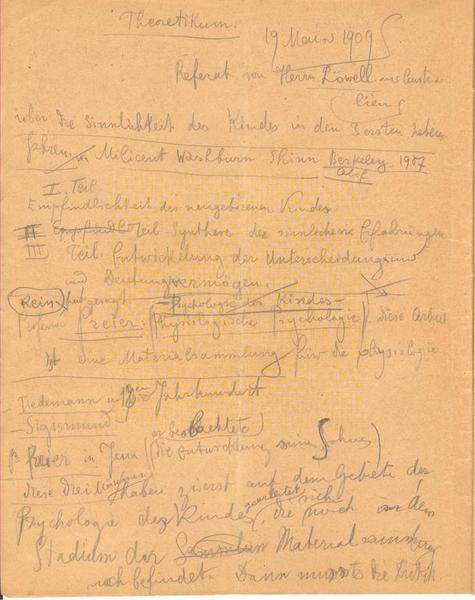 Theoretikum.
19 März 1909
Referat von Herrn Löwell aus Austra
lien
über die Sinnlichkeit des Kindes in den 3 ersten Lebens
Jahren, Milicent Washburn Shinn Berkeley. 1907
Calif
I. Teil
Empfindlichkeit des neugeborenen Kindes.
II Teil Synthese der sinnlichen Erfahrungen
III Teil. Entwickelung der Unterscheidungs und
und Deutungsvermögen.
Rein hat gesagt Psychologie des Kindes
Professor Preier. (Physiologische Psychologie). diese Arbeit
ist eine Materialsammlung für die physiologie
Tiedemann im 18ten Jahrhundert
Sigismund
er beobachtete
Preier in Jena (die Entwicklung seines Sohnes)
diese drei haben zuerst auf dem Gebiete der
Psychologie des Kindes gearbeitet, die sich noch in dem
Stadium der Materialsammlung
noch befindet. Dann musste die Kritik